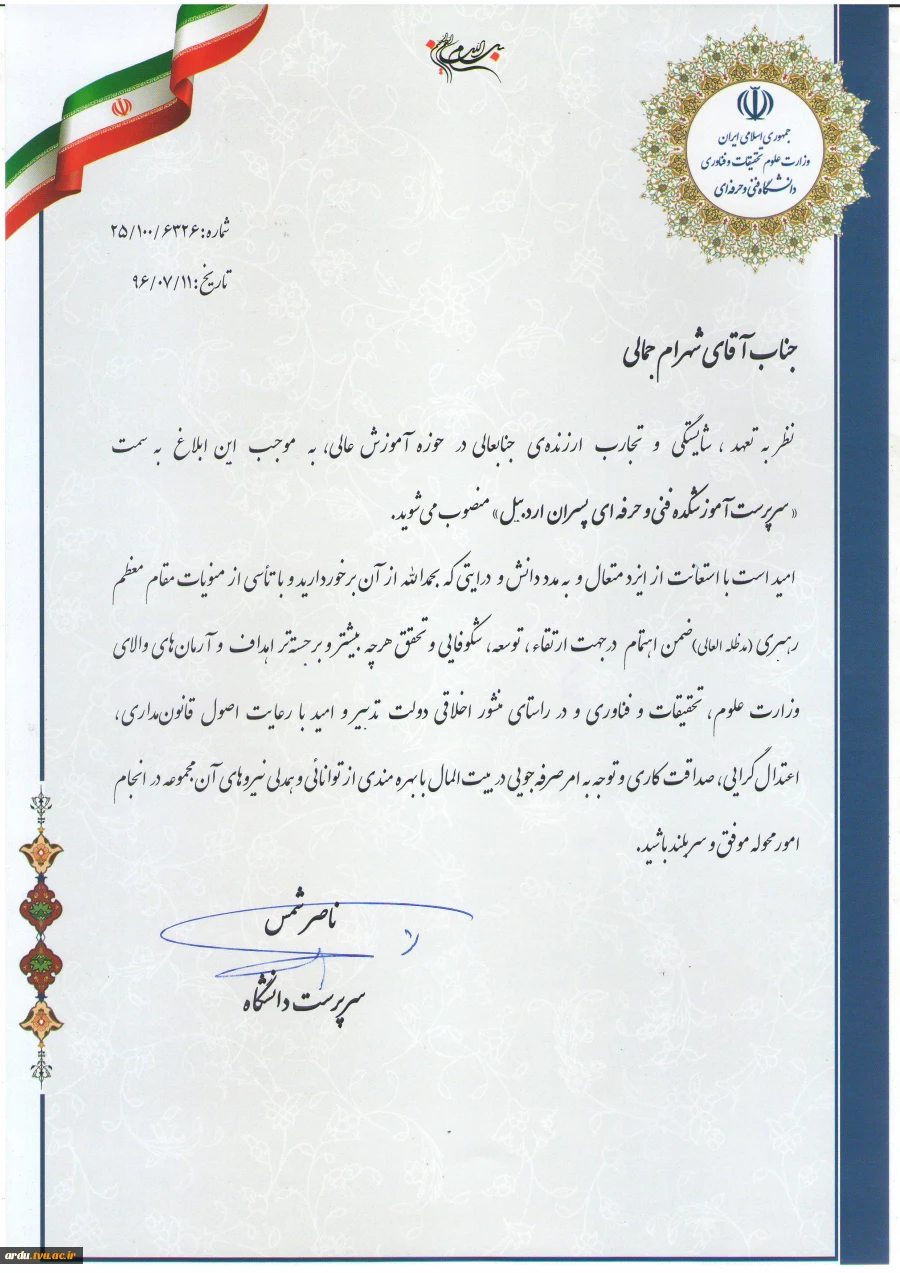 بسم الله الرحمن الرحیم
جمهوری اسلامی ایران
وزارت علوم تحقیقات و فناوری
دانشگاه فنی و حرفه ای
شماره: ۲۵/۱۰۰/۶۳۲۶
تاریخ: ۹۶/۰۷/۱۱
جناب آقای شهرام جمالی
نظر به تعهد ، شایستگی و تجارب ارزنده‌ی جنابعالی در حوزه آموزش عالی، به موجب این ابلاغ به سمت
« سرپرست آموزشکده فنی و حرفه ای پسران اردبیل» منصوب می‌شوید.
امید است با استعانت از ایزد متعال و به مدد دانش و درایتی که بحمدالله از آن برخوردارید و با تأسی از منویات مقام معظم
رهبری (مدظله العالی) ضمن اهتمام در جهت ارتقاء ، توسعه، شکوفایی و تحقق هرچه بیشتر و برجسته‌تر اهداف و آرمان‌های والای
وزارت علوم، تحقیقات و فناوری و در راستای منشور اخلاقی دولت تدبیر و امید با رعایت اصول قانون‌مداری،
اعتدال گرایی، صداقت کاری و توجه به امر صرفه جویی در بیت المال با بهره مندی از توانائی و همدلی نیروهای آن مجموعه در انجام
امور محوله موفق و سربلند باشید.
ناصر شمس
سرپرست دانشگاه
ardu.tvu.ac.ir